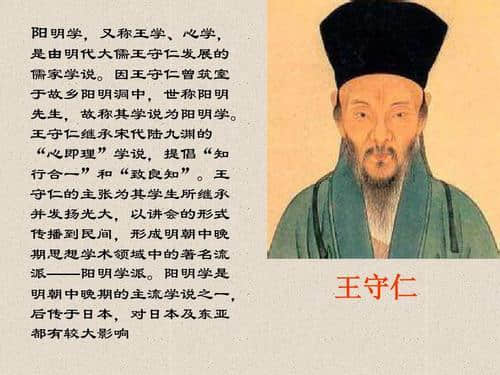 阳明学，又称王学、心学，
是由明代大儒王守仁发展的
儒家学说。因王守仁曾筑室
于故乡阳明洞中，世称阳明
先生，故称其学说为阳明学。
王守仁继承宋代陆九渊的
“心即理”学说，提倡“知
行合一”和“致良知”。王
守仁的主张为其学生所继承
并发扬光大，以讲会的形式
传播到民间，形成明朝中晚
期思想学术领域中的著名流
派——阳明学派。阳明学是
明朝中晚期的主流学说之一，
后传于日本，对日本及东亚
都有较大影响
王守仁